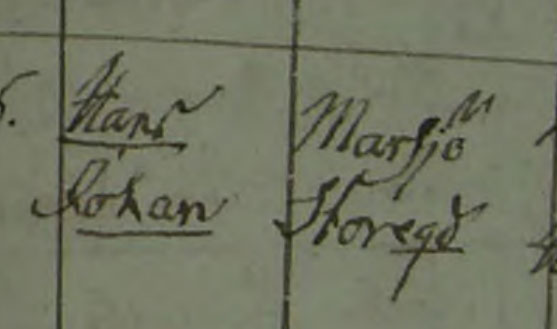 Hans
Johan
Marsjö
Storegd